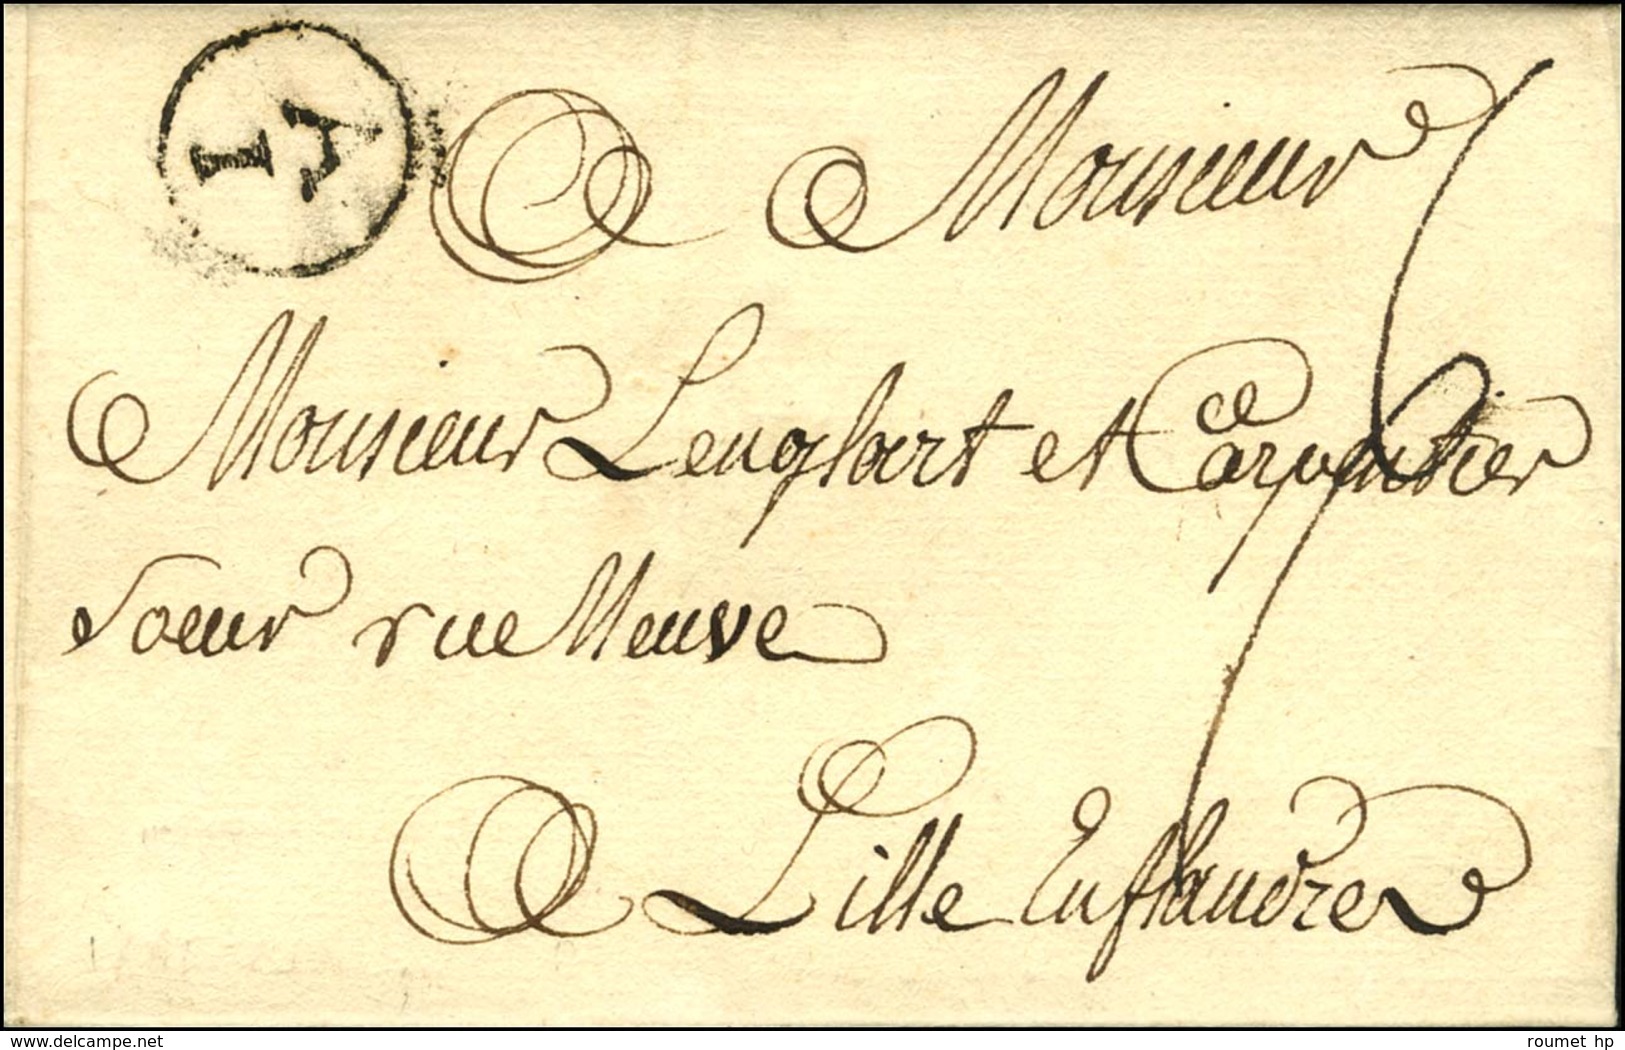 A
I
A Monsieur
Monsieur Lenglart et Carpentier
Soeur rue Neuve
A Lille En flandre
© www.delcampe.net
roumet hp